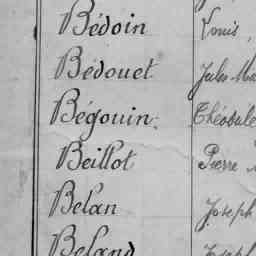 Bédoin Louis,
Bédouet Jules Ma
Bégouin. Théodule
Beillot Pierre
Belan Joseph
Beland Joseph